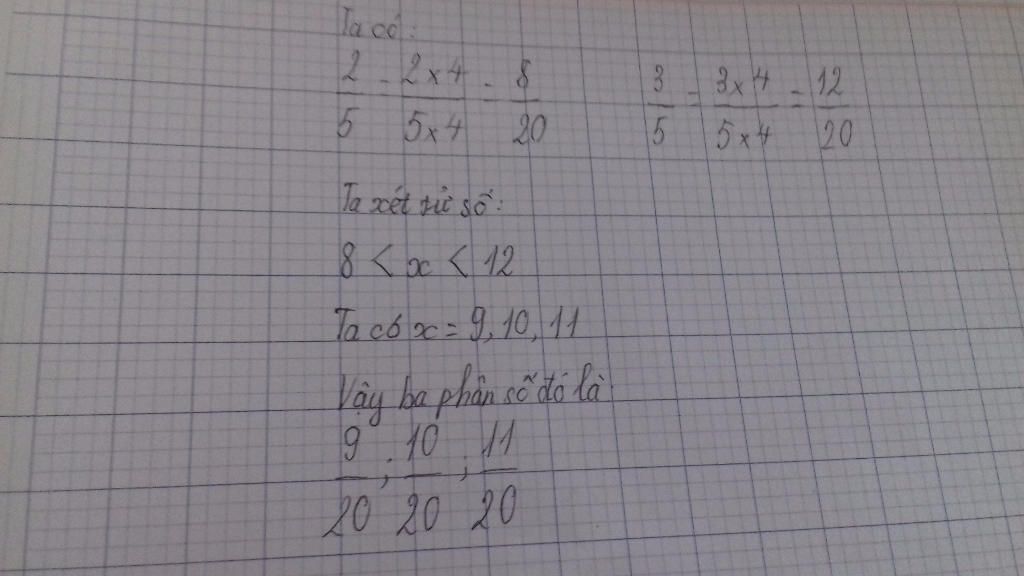 Ta có:
2/5 = 2x4/5x4 = 8/20    3/5 = 3x4/5x4 = 12/20
Ta xét tử số:
8 < x < 12
Ta có x = 9, 10, 11
Vậy ba phân số đó là
9/20 ; 10/20 ; 11/20